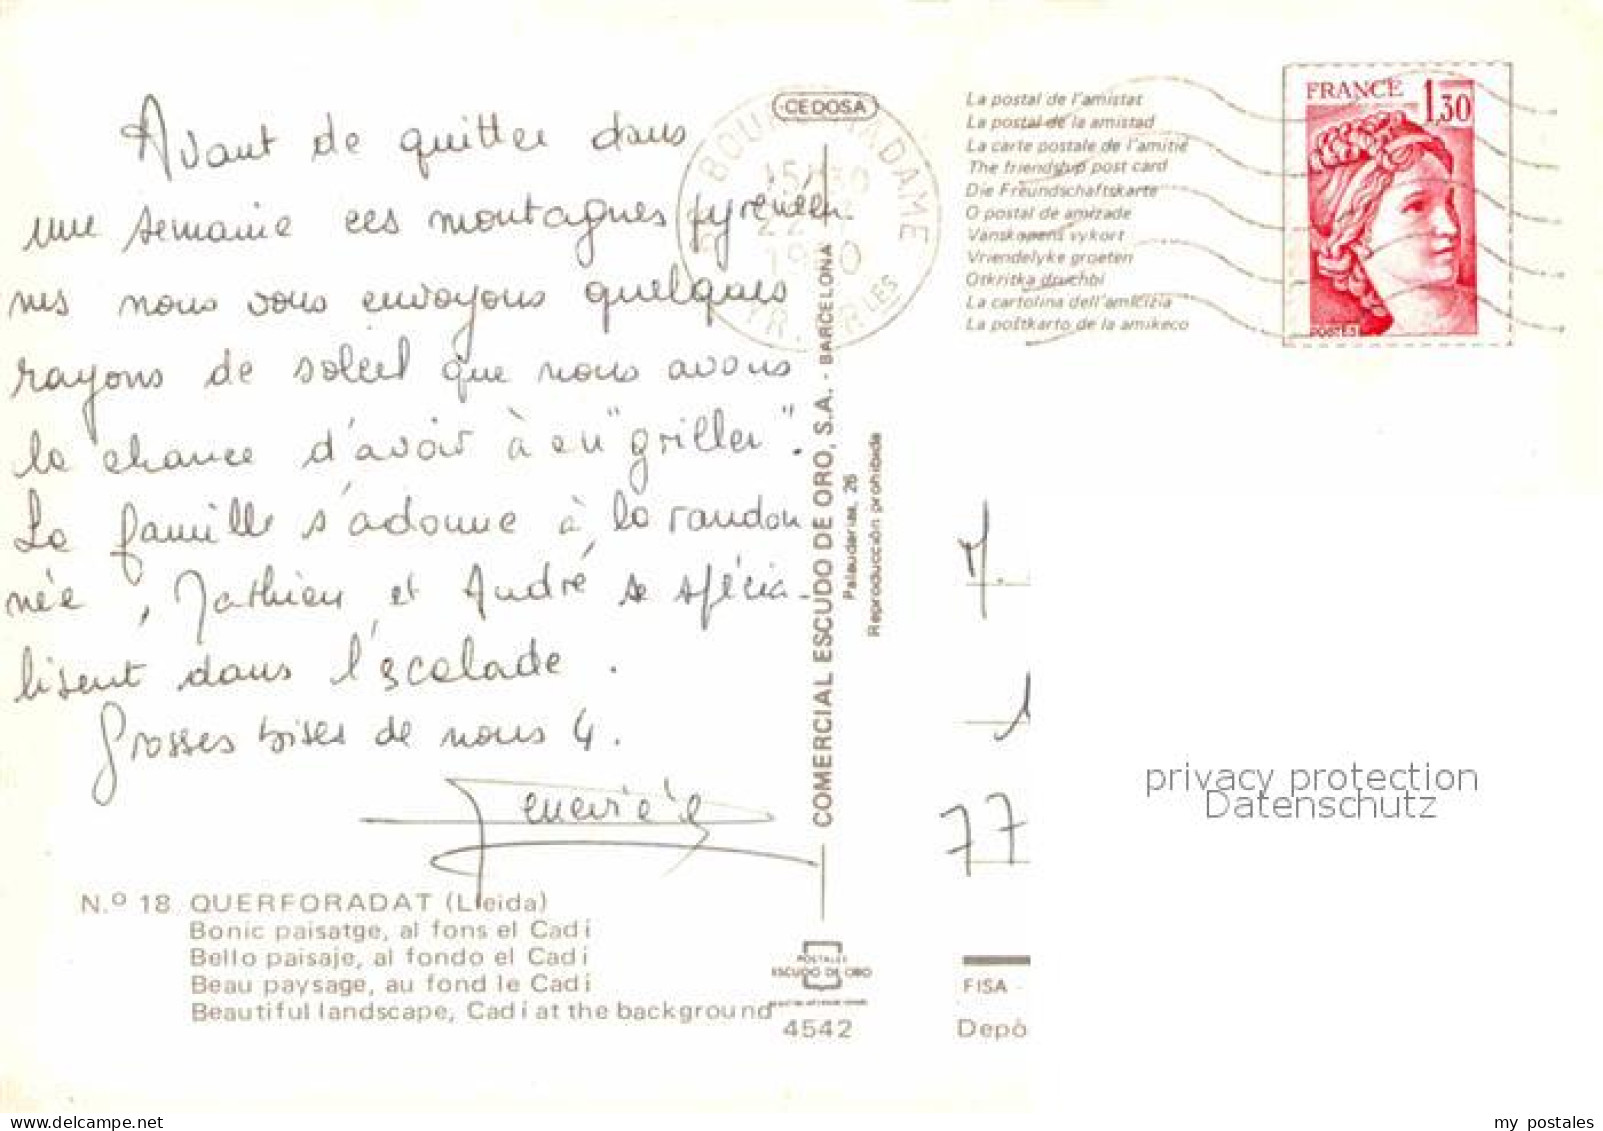 Avant de quitter dans
une semaine ces montagnes pyrénéen-
nes nous vous envoyons quelques
rayons de soleil que nous avons
la chance d'avoir à en "griller".
La famille s'adonne à la randon
née, Mathieu et André se spécia-
lisent dans l'escalade.
Grosses bises de nous 4.
Geneviève
N.º 18 QUERFORADAT (Lleida)
Bonic paisatge, al fons el Cadí
Bello paisaje, al fondo el Cadí
Beau paysage, au fond le Cadí
Beautiful landscape, Cadí at the background
CEDOSA
COMERCIAL ESCUDO DE ORO, S.A. - BARCELONA
Palaudarias, 26
Reproducción prohibida
POSTALES
ESCUDO DE ORO
4542
MADAME
La postal de l'amistat
La postal de la amistad
La carte postale de l'amitié
The friendship post card
Die Freundschaftskarte
O postal de amizade
Vänskapens vykort
Vriendelyke groeten
Otkritka druchbi
La cartolina dell'amicizia
La poŝtkarto de la amikeco
FRANCE
1,30
POSTES
M.
1
77
privacy protection
Datenschutz
FISA
Depò
my postales
www.delcampe.net